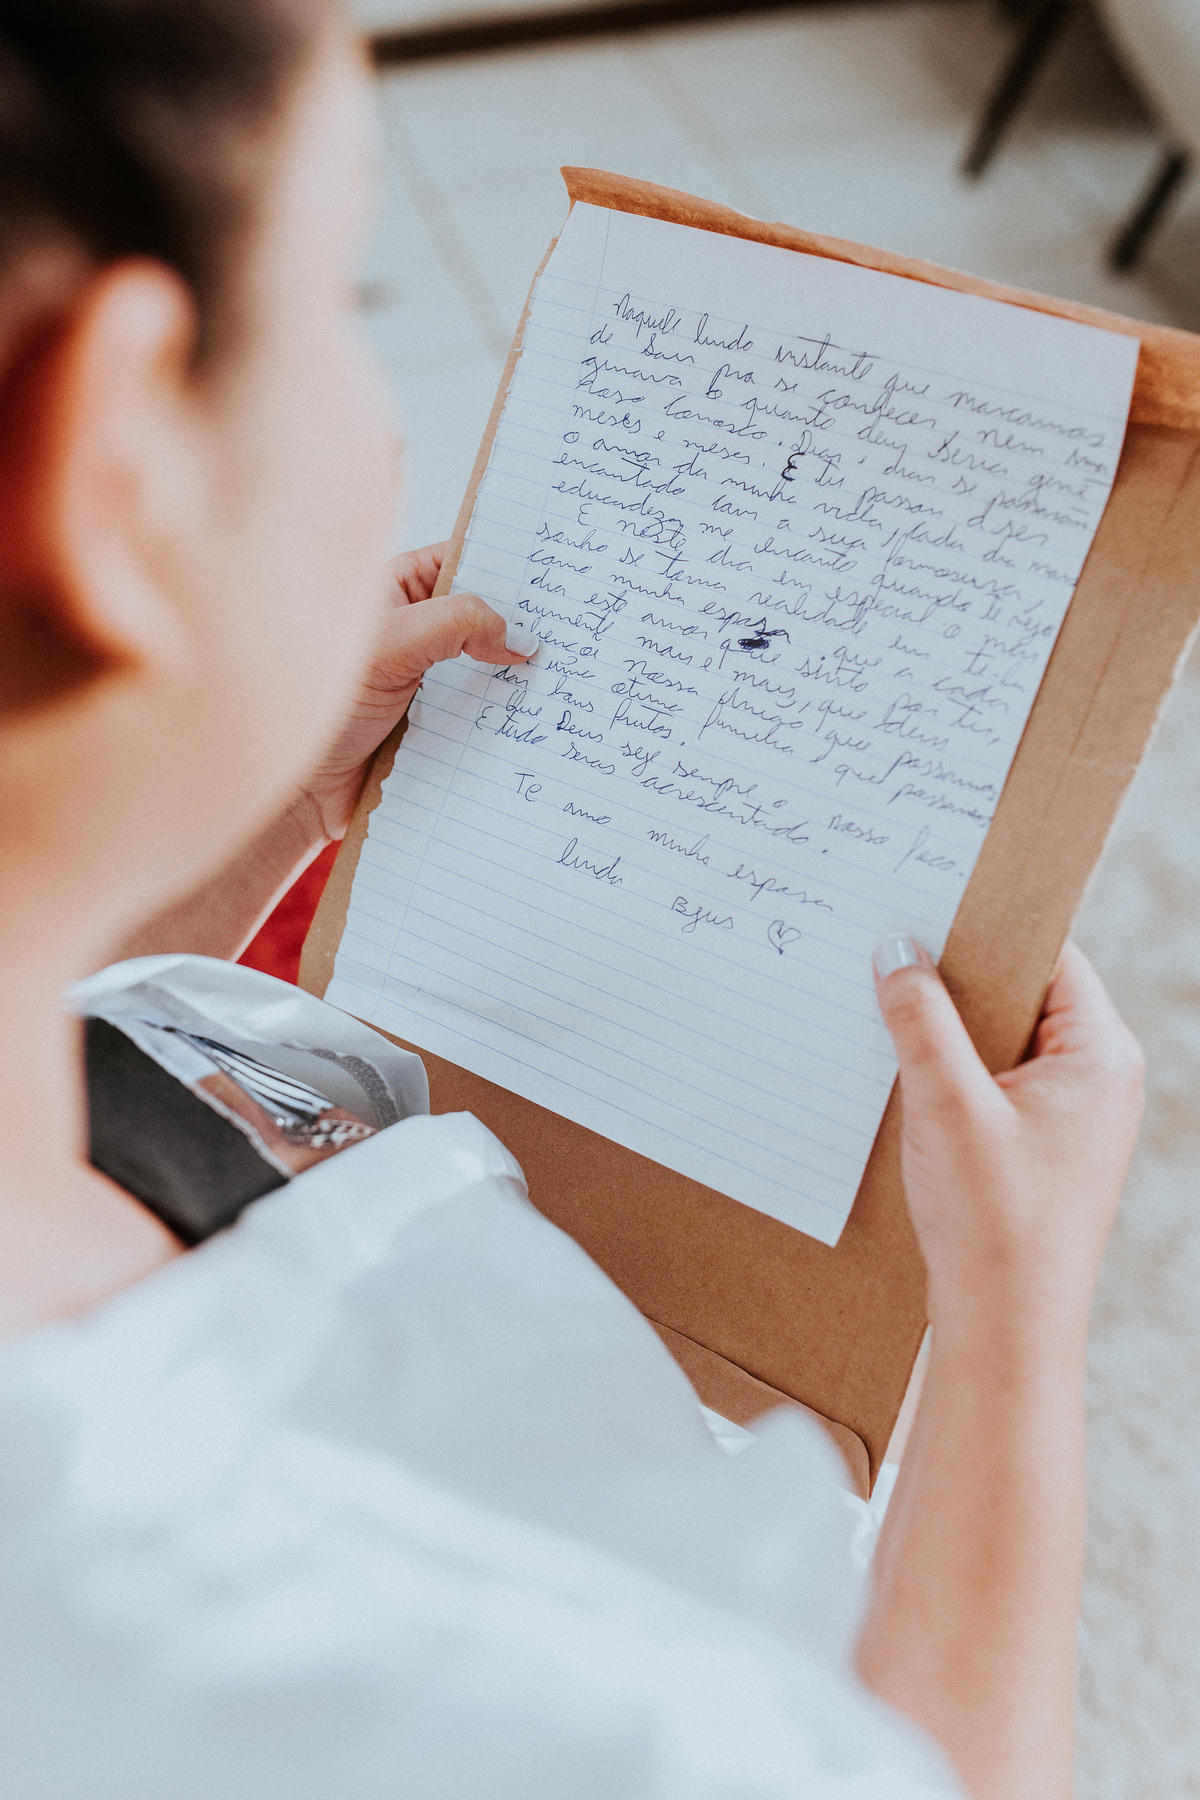 Naquele lindo instante que marcamos
de sair pra se conhecer, nem
ginava o quanto deus seria
conosco. Dias e dias se passaram
meses e meses. E tu passou a ser
o amor da minha vida, cada dia mais
encantado com a sua formosura,
educadeza me encanta quando te vejo
E neste dia em especial o meu
sonho se torna realidade em te
como minha esposa que a cada
dia este amor que sinto por ti,
aumente mais e mais, que deus
nossa união que possamos
uma otima familia e que possamos
dar bons frutos.
Que Deus seje sempre o nosso foco.
E tudo seras acrescentado.
Te amo minha esposa
linda Bjus ♡